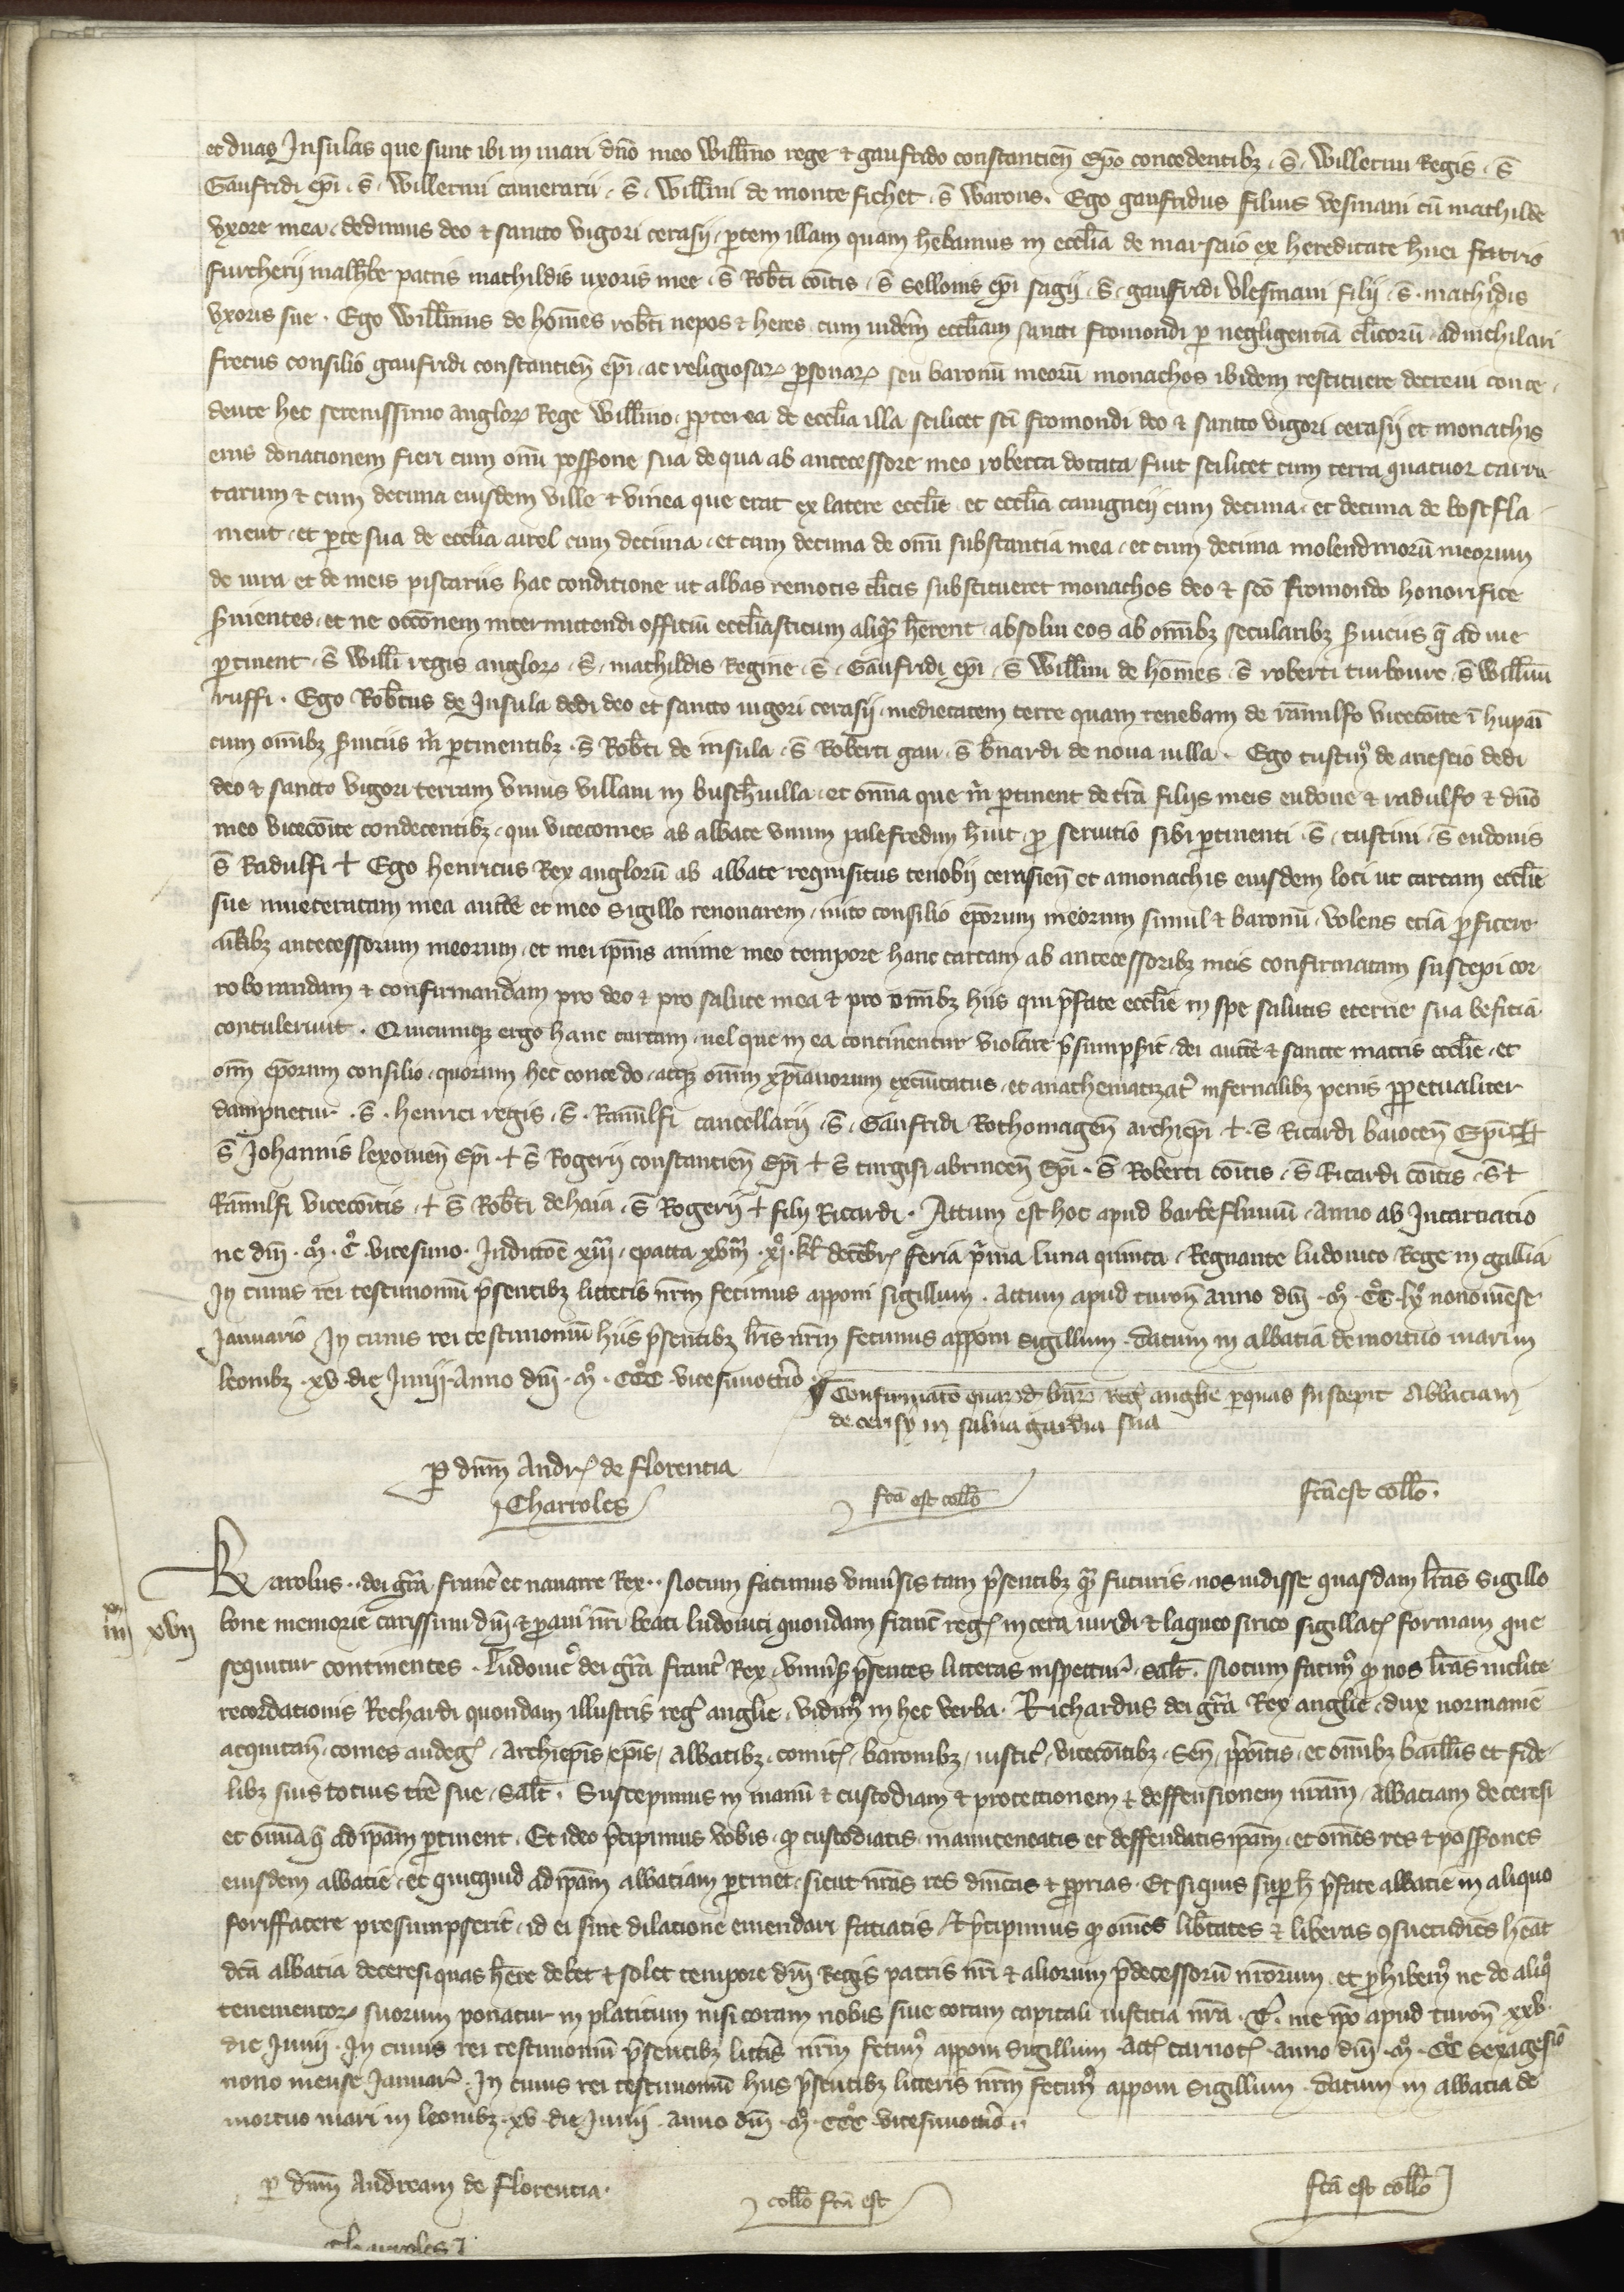 et duas Insulas que sunt ibi in mari dño meo Willmo rege et gaufrido constancieñ epo concedentibz. S. Willermi Regis. S.
Gaufridi epi. S. Willermi camerarii. S. Willmi de monte fichet. S. Warons. Ego gaufridus filius Vesmani cū mathilde
vxore mea dedimus deo et sancto vigori cerasii ptem illam quam hebamus in ecclia de marsaio ex hereditate huei fratris
furcherii patris mathildis uxoris mee. S. Robti cōitis. S. Sellonis epi sagii. S. gaufridi Vlesmani filii. S. mathildis
vxoris sue. Ego Willmus de homes robti nepos et heres cum uidem eccliam sancti fromondi p negligentiā clicorū adnichilari
fretus consilio gaufridi constancieñ epi ac religiosaꝝ psonaꝝ seu baronū meorū monachos ibidem restituere decreui conce
dente hec serenissimo angloꝝ Rege Willmo. ppterea de ecclia illa scilicet sci fromondi deo et sancto vigori cerasii et monachis
eius donationem fieri cum omī possione sua de qua ab antecessore meo roberto dotata fuit scilicet cum terra quatuor carru
carum et cum decima eiusdem ville et vinea que erat ex latere ecclie et ecclia cauigneii cum decima et decima de bostfla
ment et pte sua de ecclia airel cum decima et cum decima de omī substantia mea et cum decima molendinorū meorum
de uira et de meis piscariis hac conditione ut abbas remotis clicis substitueret monachos deo et sco fromondo honorifice
seruientes et ne occōnem intermittendi officiū eccliasticum aliqm herent absolui eos ab omibz secularibz seruiciis q ad me
ptinent. S. Willi regis angloꝝ. S. mathildis Regine. S. Gaufridi epi. S. Willmi de homes. S. roberti turboure. S. Willmi
ruffi. Ego Robtus de Insula dedi deo et sancto uigori cerasii medietatem terre quam tenebam de rannulfo vicecōite ī hupai
cum omibz seruiciis m ptinentibz. S. Robti de insula. S. Roberti gau. S. bnardi de noua uilla. Ego tustin de anescio dedi
deo et sancto vigori terram vnius villani in buschuilla et omia que m ptinent de tra filiis meis eudone et radulfo et dño
meo vicecōite condecentibz. qui vicecomes ab abbate vnum palefredum huit pro seruitio sibi ptinenti. S. tustini. S. eudonis
S. Radulfi + Ego henricus Rex anglorū ab abbate requisitus cenobii cerasieñ et a monachis eiusdem loci ut cartam ecclie
sue inueteratam mea aucte et meo sigillo renouarem. inito consilio eporum meorum simul et baronū. volens eciā pficere
aiabz antecessorum meorum et mei ipius anime meo tempore hanc cartam ab antecessoribz meis confirmatam suscepi cor
roborandam et confirmandam pro deo et pro salute mea et pro omibz hiis qui pfate ecclie in spe salutis eterne sua beficia
contulerunt. Quicumqz ergo hanc cartam uel que in ea continentur violare psumpsit. dei aucte et sancte matris ecclie. et
omī eporum consilio quorum hec concedo. atqz omīm xpianorum excōicatus et anathematizat infernalibz penis ppetualiter
dampnetur. S. henrici regis. S. Rannulfi cancellarii. S. Gaufridi Rothomageñ archiepi + S. Ricardi baioceñ Epi +
S. Johannis lexouieñ Epi + S. Rogerii constancieñ Epi + S. turgisi abrinceñ Epi. S. Roberti cōitis. S. Ricardi cōitis. S. +
Rannulfi vicecōitis. + S. Robti de haia. S. Rogerii + filii Ricardi. Actum est hoc apud barbefluuiū anno ab Incarnacio
ne dni. M. C. vicesimo. Indictōe xiiii. epacta xviii. xi. kl decēbr feria pma luna quinta. Regnante ludouico Rege in gallia
In cuius rei testimoniū psentibz litteris nrm fecimus apponi sigillum. Actum apud turon anno dni M. CC. lx nono mēse
Januario In cuius rei testimoniū hiis psentibz lris nrm fecimus apponi sigillum. datum in abbatia de mortuo mari in
leonibz. xv. die Junii Anno dni. M. CCC vicesimoctio.
Confirmatō quarūd lrar reg anglie p quas suscepit Abbaciam
de cerisy in salua gardia sua
p dnm Andr de florencia
Charroles
fca est collō
fca est collō.
Karolus. dei gra franc et nauarre Rex. Notum facimus vniuersis tam psentibz qm futuris. nos uidisse quasdam lras sigillo
xvi
iiij xvij
bone memorie carissimi dni et paui nri beati ludouici quondam franc reg. in cera uiridi et laqueo sirico sigillat formam que
sequitur continentes. Ludouic dei gra franc Rex. vniuersis psentes litteras inspecturis. salt. Notum facim q nos lras inclite
recordationis Rechardi quondam illustris reg anglie. vidim in hec verba. Richardus dei gra Rex anglie. dux normanie
acquitan. comes andeg. Archiepis, epis, Abbatibz. comit. baronibz. iustic. vicecōitibz. Sen. ppositis. et omibz bailliis et fide
libz suis totius tre sue. salt. Suscepimus in manū et custodiam et protectionem et deffensionem nram. abbaciam de ceresi
et omia q ad ipam ptinent. Et ideo pcipimus vobis. q custodiatis manuteneatis et deffendatis ipam. et omes res et possiones
eiusdem abbatie. et quicquid ad ipam abbaciam ptinet. sicut nras res dnicas et pprias. Et siquis sup h pfate abbatie in aliquo
foriffacere presumpserit. id ei sine dilacione emendari faciatis. Et pcipimus q omes libtates et liberas ꝯsuetudies heat
dca abbacia de ceresi quas here debet et solet tempore dni Regis patris nri et aliorum pdecessorū nrorum. et phibem ne de aliq
tenementoꝝ suorum ponatur in placitum nisi coram nobis siue coram capitali iusticia nra. T. me ipo apud turon xxv.
die Junii. In cuius rei testimoniū psentibz littis nrm fecim apponi sigillum. Act carnot. anno dni. M. CC sexagesio
nono mense Januar. In cuius rei testimoniū hiis psentibz litteris nrm fecim apponi sigillum. datum in abbatia de
mortuo mari in leonibz. xv. die Junii. anno dni. M. CCC vicesimoctio.
p dnm Andream de florencia.
collō fca est
fca est collō
Charroles